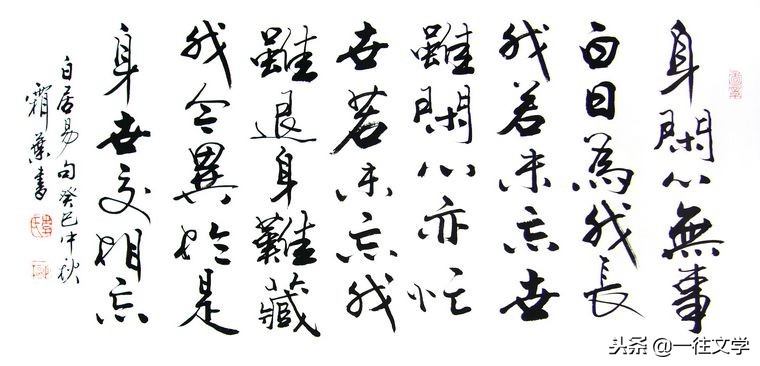 身閑心無事
白日為我長
我若未忘世
雖閑心亦忙
世若未忘我
雖退身難藏
我今異於是
身世交相忘
白居易句癸巳中秋
霜葉書
头条 @一往文学